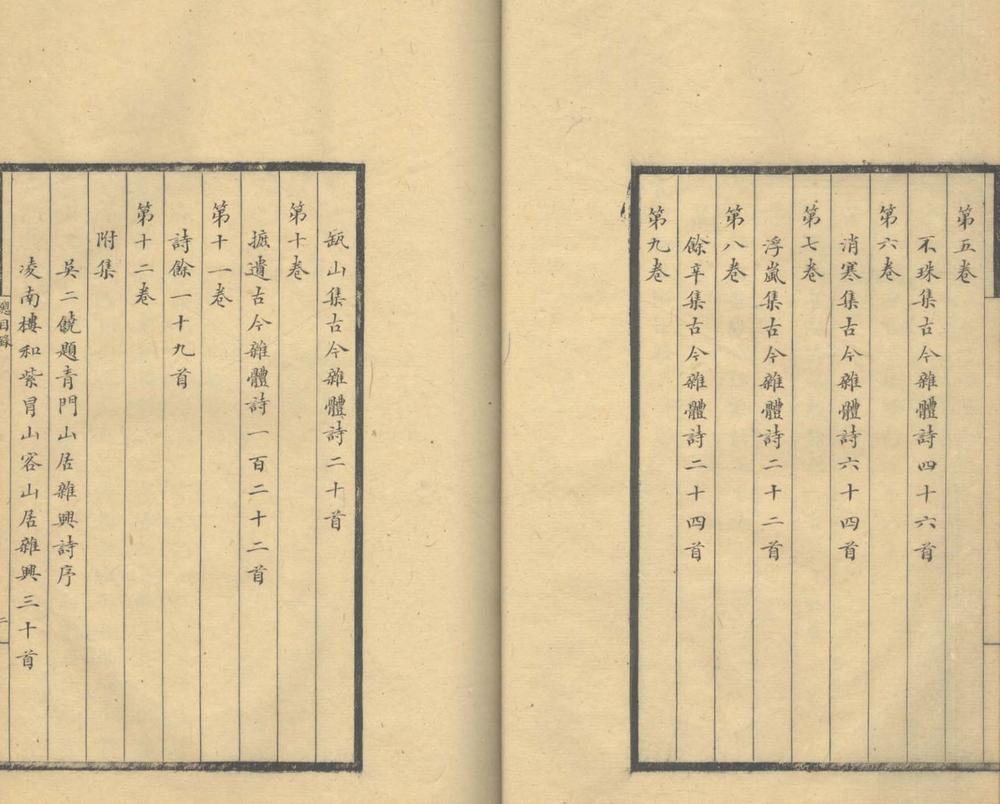 第五卷
不珠集古今雜體詩四十六首
第六卷
消寒集古今雜體詩六十四首
第七卷
浮嵐集古今雜體詩二十二首
第八卷
餘辛集古今雜體詩二十四首
第九卷
瓻山集古今雜體詩二十首
第十卷
摭遺古今雜體詩一百二十二首
第十一卷
詩餘一十九首
第十二卷
附集
吳二饒題青門山居雜興詩序
凌南樓和紫冒山客山居雜興三十首
總目錄
二